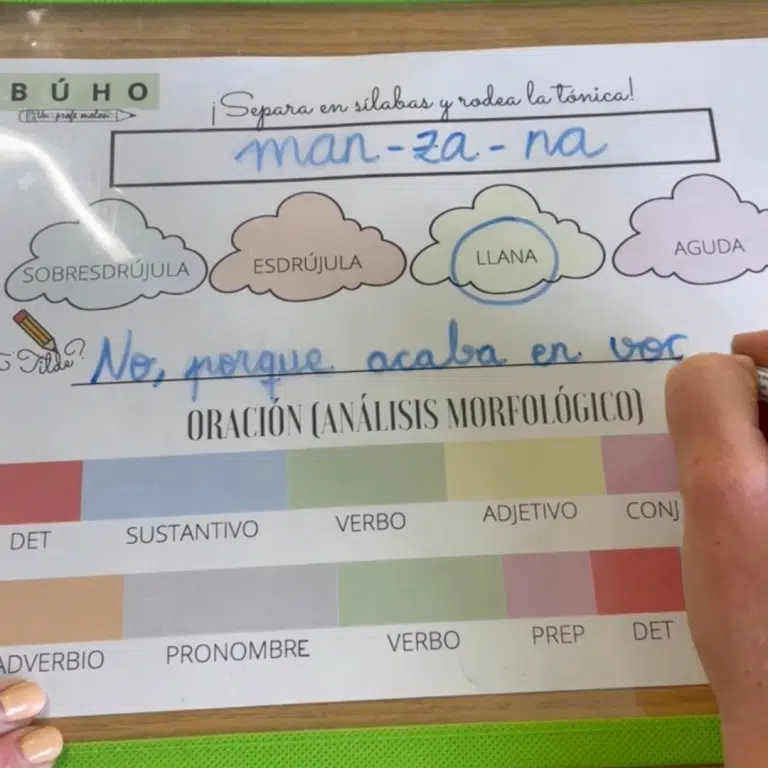 BÚHO
¡Separa en sílabas y rodea la tónica!
man-za-na
SOBRESDRÚJULA ESDRÚJULA LLANA AGUDA
Tilde? No, porque acaba en voc
ORACIÓN (ANÁLISIS MORFOLÓGICO)
DET SUSTANTIVO VERBO ADJETIVO CONJ
ADVERBIO PRONOMBRE VERBO PREP DET